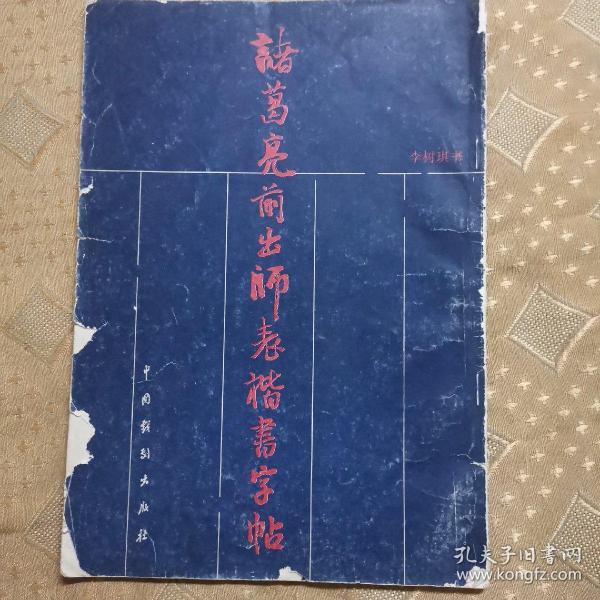 諸葛亮前出师表楷書字帖
李树琪书
中国戏剧出版社
孔夫子旧书网
www.kongfz.com